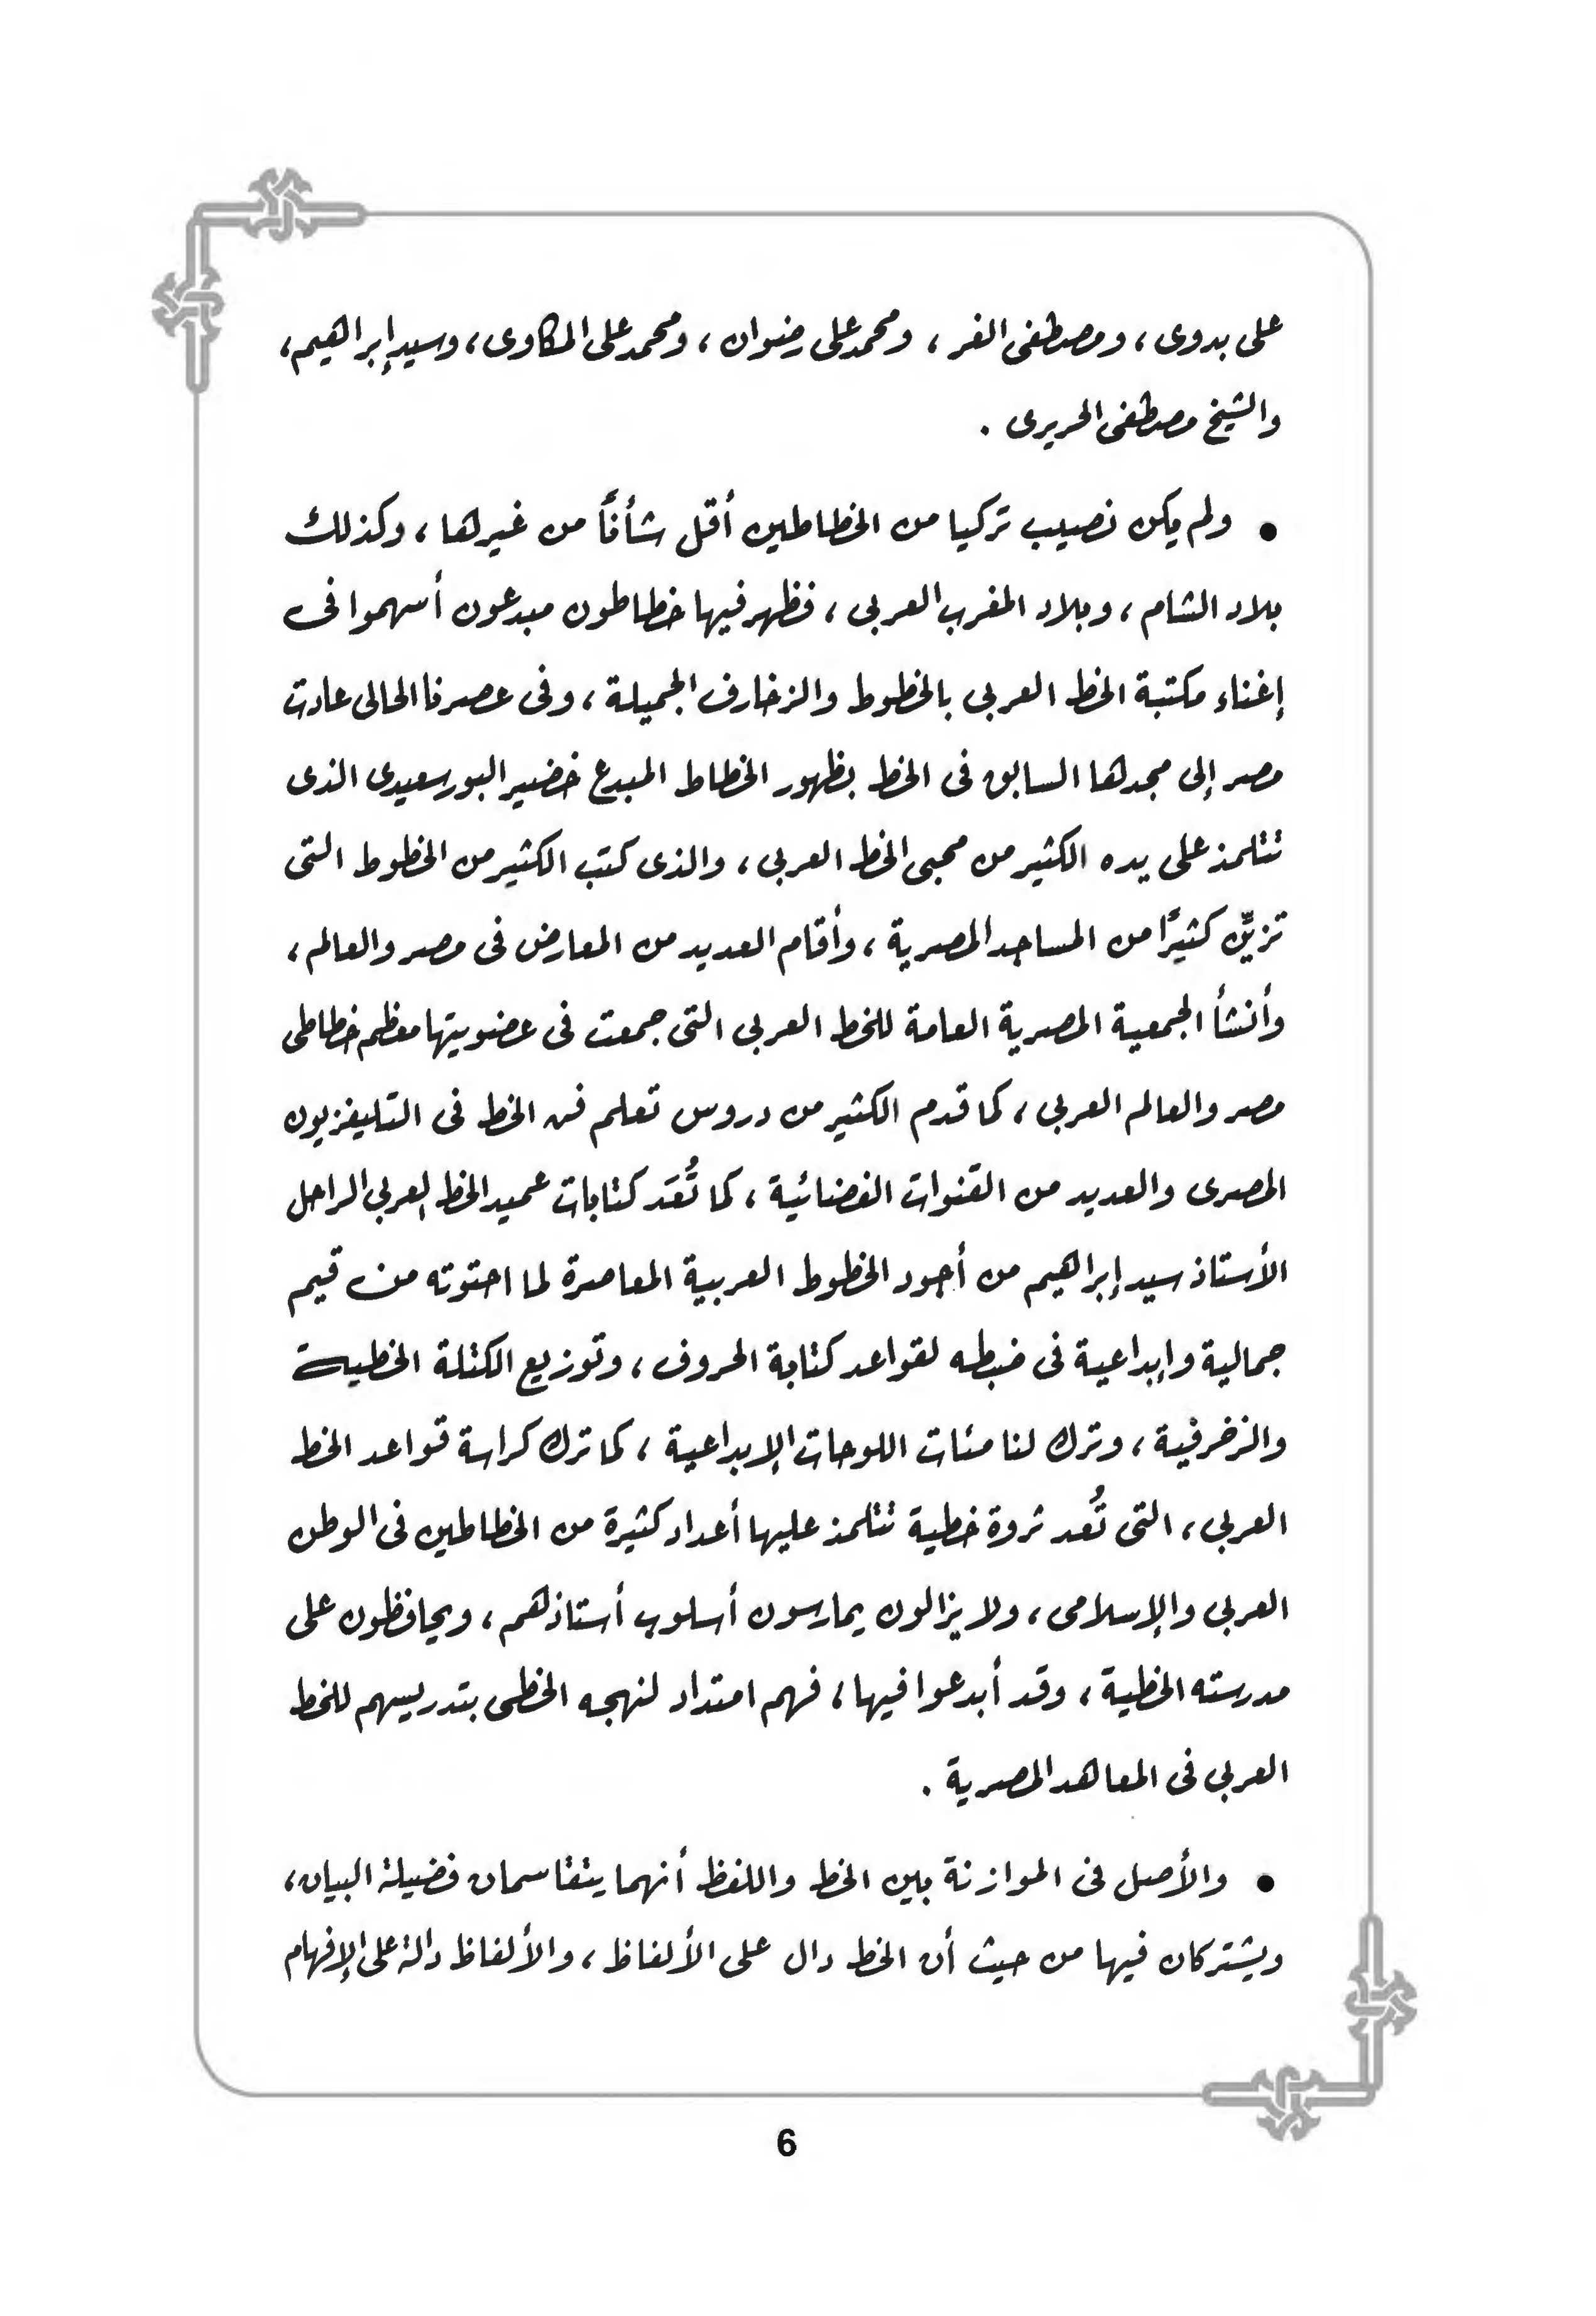 على بدوى ، ومصطفى الغر ، ومحمد على رضوان ، ومحمد على المكاوى ، وسيد إبراهيم ،
والشيخ مصطفى الحريرى .
• ولم يكن نصيب تركيا من الخطاطين أقل شأنًا من غيرها ، وكذلك
بلاد الشام ، وبلاد المغرب العربى ، فظهر فيها خطاطون مبدعون أسهموا فى
إغناء مكتبة الخط العربى بالخطوط والزخارف الجميلة ، وفى عصرنا الحالى عادت
مصر إلى مجدها السابق فى الخط بظهور الخطاط المبدع خضير البورسعيدى الذى
تتلمذ على يده الكثير من محبى الخط العربى ، والذى كتب الكثير من الخطوط التى
تزيِّن كثيرًا من المساجد المصرية ، وأقام العديد من المعارض فى مصر والعالم ،
وأنشأ الجمعية المصرية العامة للخط العربى التى جمعت فى عضويتها معظم خطاطى
مصر والعالم العربى ، كما قدم الكثير من دروس تعلم فن الخط فى التليفزيون
المصرى والعديد من القنوات الفضائية ، كما تُعَد كتابات عميد الخط العربى الراحل
الأستاذ سيد إبراهيم من أجود الخطوط العربية المعاصرة لما احتوته من قيم
جمالية وإبداعية فى ضبطه لقواعد كتابة الحروف ، وتوزيع الكتلة الخطية
والزخرفية ، وترك لنا مئات اللوحات الإبداعية ، كما ترك كراسة قواعد الخط
العربى ، التى تُعد ثروة خطية تتلمذ عليها أعداد كثيرة من الخطاطين فى الوطن
العربى والإسلامى ، ولا يزالون يمارسون أسلوب أستاذهم ، ويحافظون على
مدرسته الخطية ، وقد أبدعوا فيها ، فهم امتداد لنهجه الخطى بتدريسهم للخط
العربى فى المعاهد المصرية .
• والأصل فى الموازنة بين الخط واللفظ أنهما يتقاسمان فضيلة البيان ،
ويشتركان فيها من حيث أن الخط دال على الألفاظ ، والألفاظ دالة على الإفهام
6